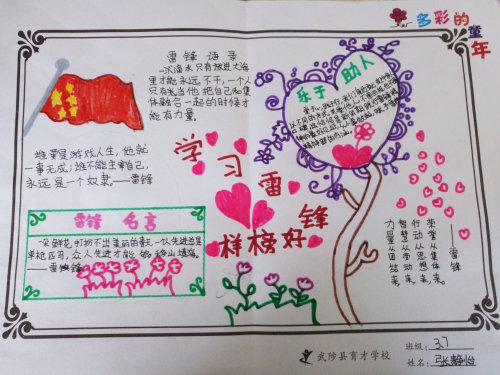 多彩的童年
雷锋语录
一滴水只有放进大海
里才能永远不干,一个人
只有当他把自己和集
体融合一起的时候才
能有力量。
谁要是游戏人生,他就
一事无成;谁不能主宰自己,
永远是一个奴隶。——雷锋
学习雷锋
样榜好
乐于助人
雷锋名言
一朵鲜花打扮不出美丽的春天,一个人先进总是
单枪匹马,众人先进才能够移山填海。
——雷锋
荣誉从集体来,
行动从思想来,
智慧从劳动来,
力量从团结来。
——雷锋
武陟县育才学校
班级: 37
姓名: 张静怡